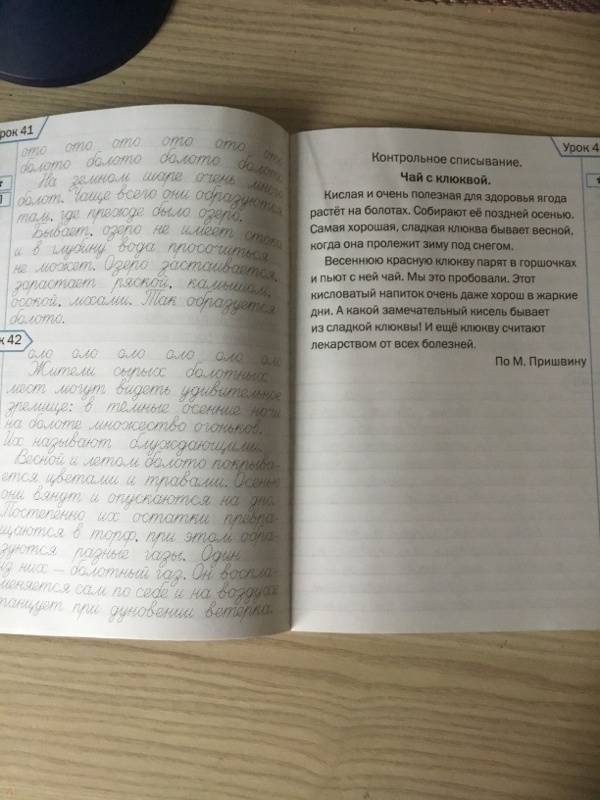 рок 41
ото ото ото ото ото ото
болото болото болото болото
На земном шаре очень много
болот. Чаще всего они образуются
там, где прежде было озеро.
Бывает, озеро не имеет стока
и в глубину вода просочиться
не может. Озеро застаивается,
зарастает ряской, камышом,
осокой, мхами. Так образуется
болото.
к 42
оло оло оло оло оло оло
Жители сырых болотных
мест могут видеть удивительное
зрелище: в тёмные осенние ночи
на болоте множество огоньков.
Их называют блуждающими.
Весной и летом болото покрыва-
ется цветами и травами. Осенью
они вянут и опускаются на дно.
Постепенно их остатки превра-
щаются в торф, при этом обра-
зуются разные газы. Один
из них – болотный газ. Он воспла-
меняется сам по себе и на воздухе
танцует при дуновении ветерка.
Урок 4
Контрольное списывание.
Чай с клюквой.
Кислая и очень полезная для здоровья ягода
растёт на болотах. Собирают её поздней осенью.
Самая хорошая, сладкая клюква бывает весной,
когда она пролежит зиму под снегом.
Весеннюю красную клюкву парят в горшочках
и пьют с ней чай. Мы это пробовали. Этот
кисловатый напиток очень даже хорош в жаркие
дни. А какой замечательный кисель бывает
из сладкой клюквы! И ещё клюкву считают
лекарством от всех болезней.
По М. Пришвину